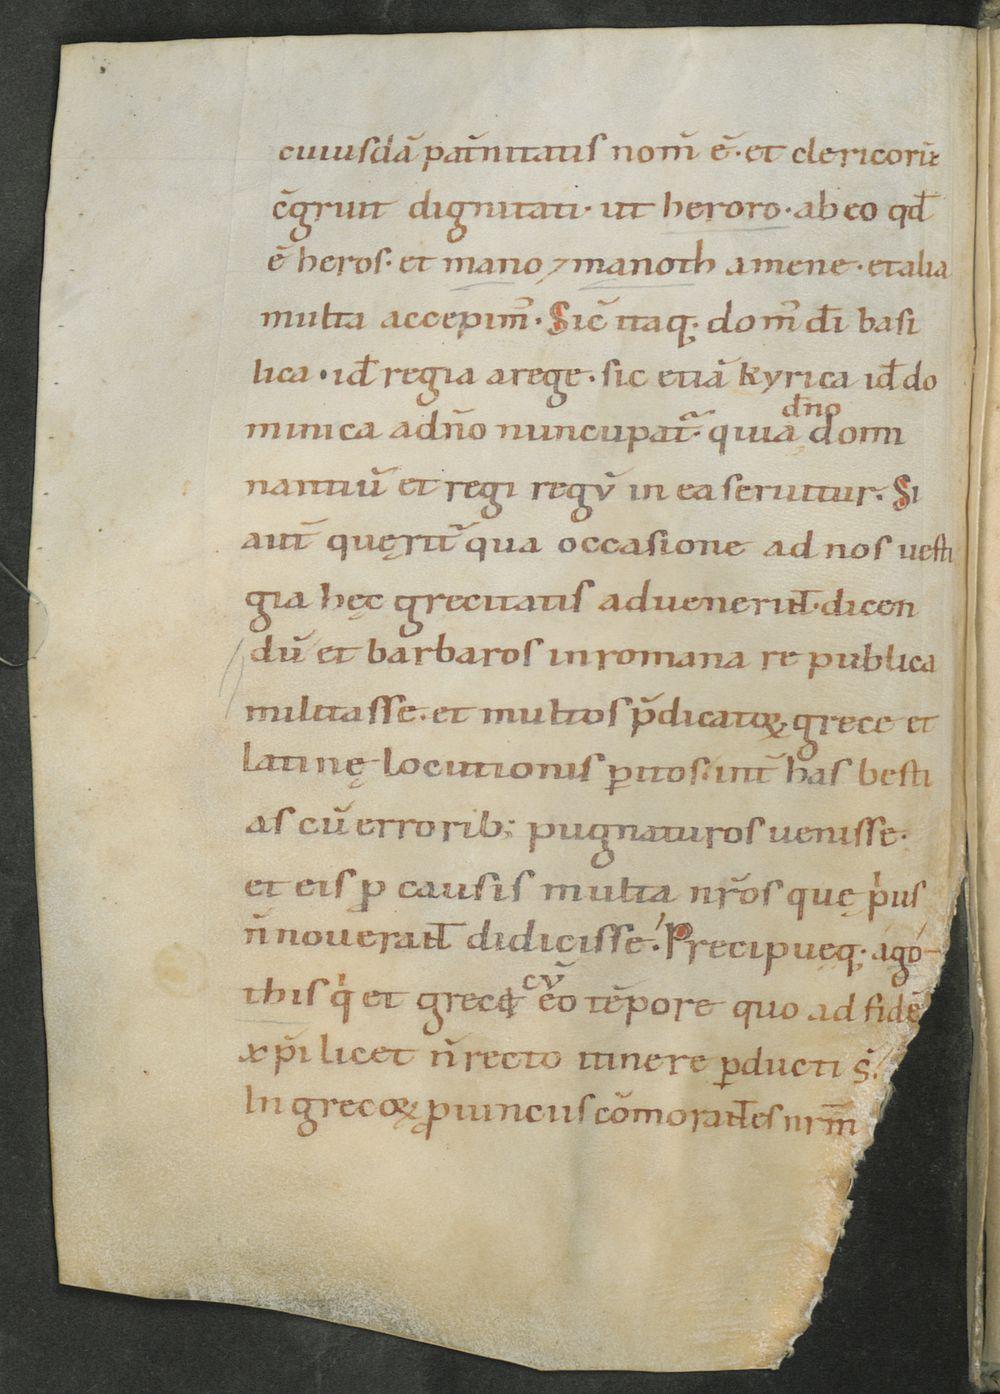 cuiusdā pat̄nitatis nom̄ ē· et clericorū
c̄gruit dignitati· ut heroro· ab eo qđ
ē heros· et mano ⁊ manoth a mene· et alia
multa accepim᷒· Sic̄ itaq· dom᷒ dī basi
lica· iđ regia a rege· sic etiā kyrica iđ do
minica a dn̄o nuncupat᷑· quia dn̄o domi
nantiū et regi regū in ea seruitur. Si
aut̄ quęrit᷑ qua occasione ad nos uesti
gia hęc grecitatis aduenerint̄· dicen
dū et barbaros in romana re publica
militasse· et multos p̄dicatoꝝ grece et
latinę locutionis ꝑitos· int̄ has besti
as cū errorib; pugnaturos uenisse·
et eis ꝓ causis multa nr̄os quę pius
n̄ nouerant̄ didicisse· Precipueq· a go
this qi et grecę cū eo tēpore quo ad fidē
xp̄i licet n̄ recto itinere ꝑducti s̄·
In grecoꝝ ꝓuinciis cōmorantes nrm̄